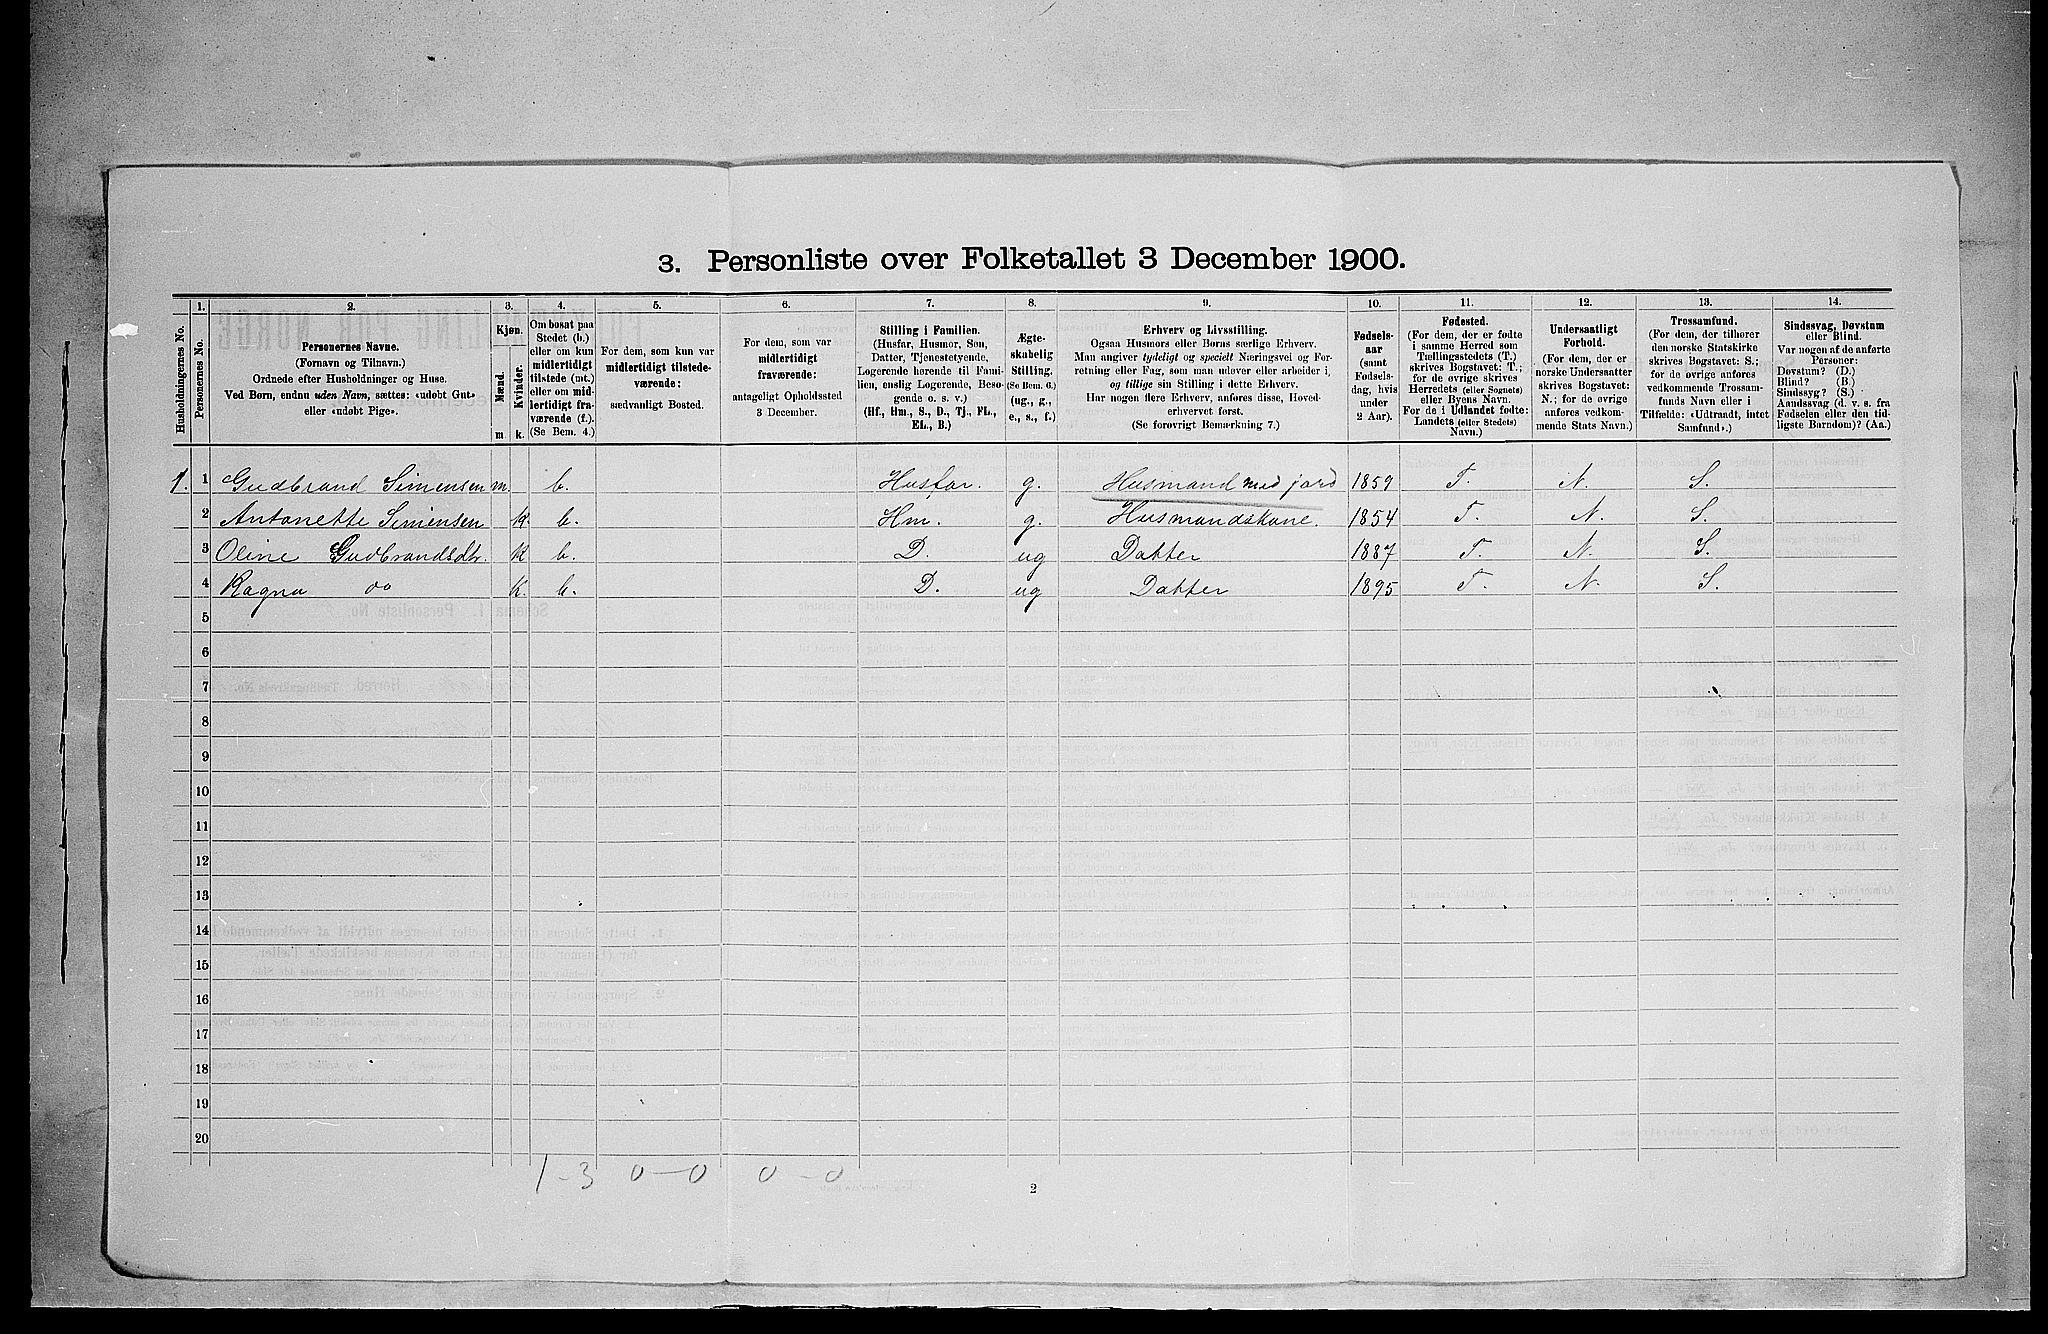 3. Personliste over Folketallet 3 December 1900.
Husholdningernes No.
1.
Personernes No.
2.
Personernes Navne.
(Fornavn og Tilnavn.)
Ordnede efter Husholdninger og Huse.
Ved Børn, endnu uden Navn, sættes: «udøbt Gut»
eller «udøbt Pige».
3.
Kjøn.
Mænd.
Kvinder.
m.
k.
4.
Om bosat paa
Stedet (b.)
eller om kun
midlertidigt
tilstede (mt.)
eller om mid-
lertidigt fra-
værende (f.).
(Se Bem. 4.)
5.
For dem, som kun var
midlertidigt tilstede-
værende:
sædvanligt Bosted.
6.
For dem, som var
midlertidigt
fraværende:
antageligt Opholdssted
3 December.
7.
Stilling i Familien.
(Husfar, Husmor, Søn,
Datter, Tjenestetyende,
Logerende hørende til Fami-
lien, enslig Logerende, Besø-
gende o. s. v.)
(Hf., Hm., S., D., Tj., FL.,
EL., B.)
8.
Ægte-
skabelig
Stilling.
(Se Bem. 6.)
(ug., g.,
e., s., f.)
9.
Erhverv og Livsstilling.
Ogsaa Husmors eller Børns særlige Erhverv.
Man angiver tydeligt og specielt Næringsvei og For-
retning eller Fag, som man udøver eller arbeider i,
og tillige sin Stilling i dette Erhverv.
Har nogen flere Erhverv, anføres disse, Hoved-
erhvervet først.
(Se forøvrigt Bemærkning 7.)
10.
Fødsels-
aar
(samt
Fødsels-
dag, hvis
under
2 Aar).
11.
Fødested.
(For dem, der er fødte
i samme Herred som
Tællingsstedets (T.)
skrives Bogstavet: T.;
for de øvrige skrives
Herredets (eller Sognets)
eller Byens Navn.
For de i Udlandet fødte:
Landets (eller Stedets)
Navn.)
12.
Undersaatligt
Forhold.
(For dem, der er
norske Undersaatter
skrives Bogstavet:
N.; for de øvrige
anføres vedkom-
mende Stats Navn.)
13.
Trossamfund.
(For dem, der tilhører
den norske Statskirke
skrives Bogstavet: S.;
for de øvrige anføres
vedkommende Trossam-
funds Navn eller i
Tilfælde: «Udtraadt, intet
Samfund».)
14.
Sindssvag, Døvstum
eller Blind.
Var nogen af de anførte
Personer:
Døvstum? (D.)
Blind? (B.)
Sindssyg? (S.)
Aandssvag (d. v. s. fra
Fødselen eller den tid-
ligste Barndom)? (Aa.)
1. 1 Gudbrand Simensen m. b. Husfar. g. Husmand med jord 1859 T. N. S.
2 Antonette Simensen K. b. Hm. g. Husmandskone. 1854 T. N. S.
3 Oline Gudbrandsdtr. K b. D. ug Datter 1887 T. N. S.
4 Ragna do K. b. D. ug Datter 1895 T. N. S.
5
6
7
8
9
10
11
12
13
14
15
16
17
18
19
20
1-3 0-0 0-0
2